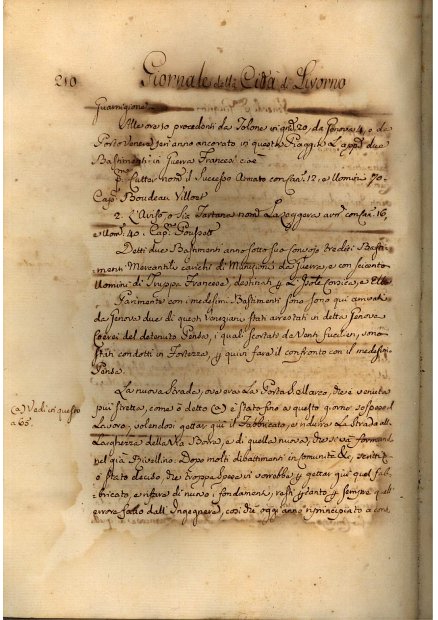 210 Giornale della Città di Livorno
Guarnigione.
Alle ore 10 procedenti da Tolone in gni 20, da Genova 4, e da
Porto Venere jeri anno ancorato in questa Piaggia L'app.o due
Bastimenti in Guerra Francesi cioè
P. Lutta nom. il Successo Armato con Can. 12. e Uomini 70.
Cap. Boudeau
2. L'Aviso o sia Tartana nom. La Leggera arm. con Can. 16,
e Uom. 40. Cap.
Detti due Bastimenti anno sotto suo convojo tredici Basti-
menti Mercantili carichi di Munizioni da Guerra, e con seicento
Uomini di Truppa Francese, destinati p L'Isole Corsica, e Elba
Parimente con i medesimi Bastimenti sono qui arrivati
da Genova due di questi Veneziani stati arrestati in detta Genova
Correi del detenuto Pensa, i quali scortati da Venti Fucilieri, sono
stati condotti in Fortezza p quivi fare il confronto con il medesimo
Pensa.
La nuova Strada, ove era La Porta S. Marco, che è venuta
(a) Vedi in questo
a 65.
più stretta, come è detto (a) è stato fino a questo giorno sospeso il
Lavoro, volendosi gettar giù il Fabbricato, e ridurre La Strada alla
Larghezza della Via Borra, e di quella nuova, che si và formando
nel già Rivellino. Dopo molti dibattimenti in Comunità &c, sentito
è stato deciso, che troppa spesa vi vorrebbe p gettar giù quel fab-
bricato, e rifare di nuovo i fondamenti, resti p tanto p sempre quell'
errore fatto dall'Ingegnere, così che oggi anno rincominciato a con-